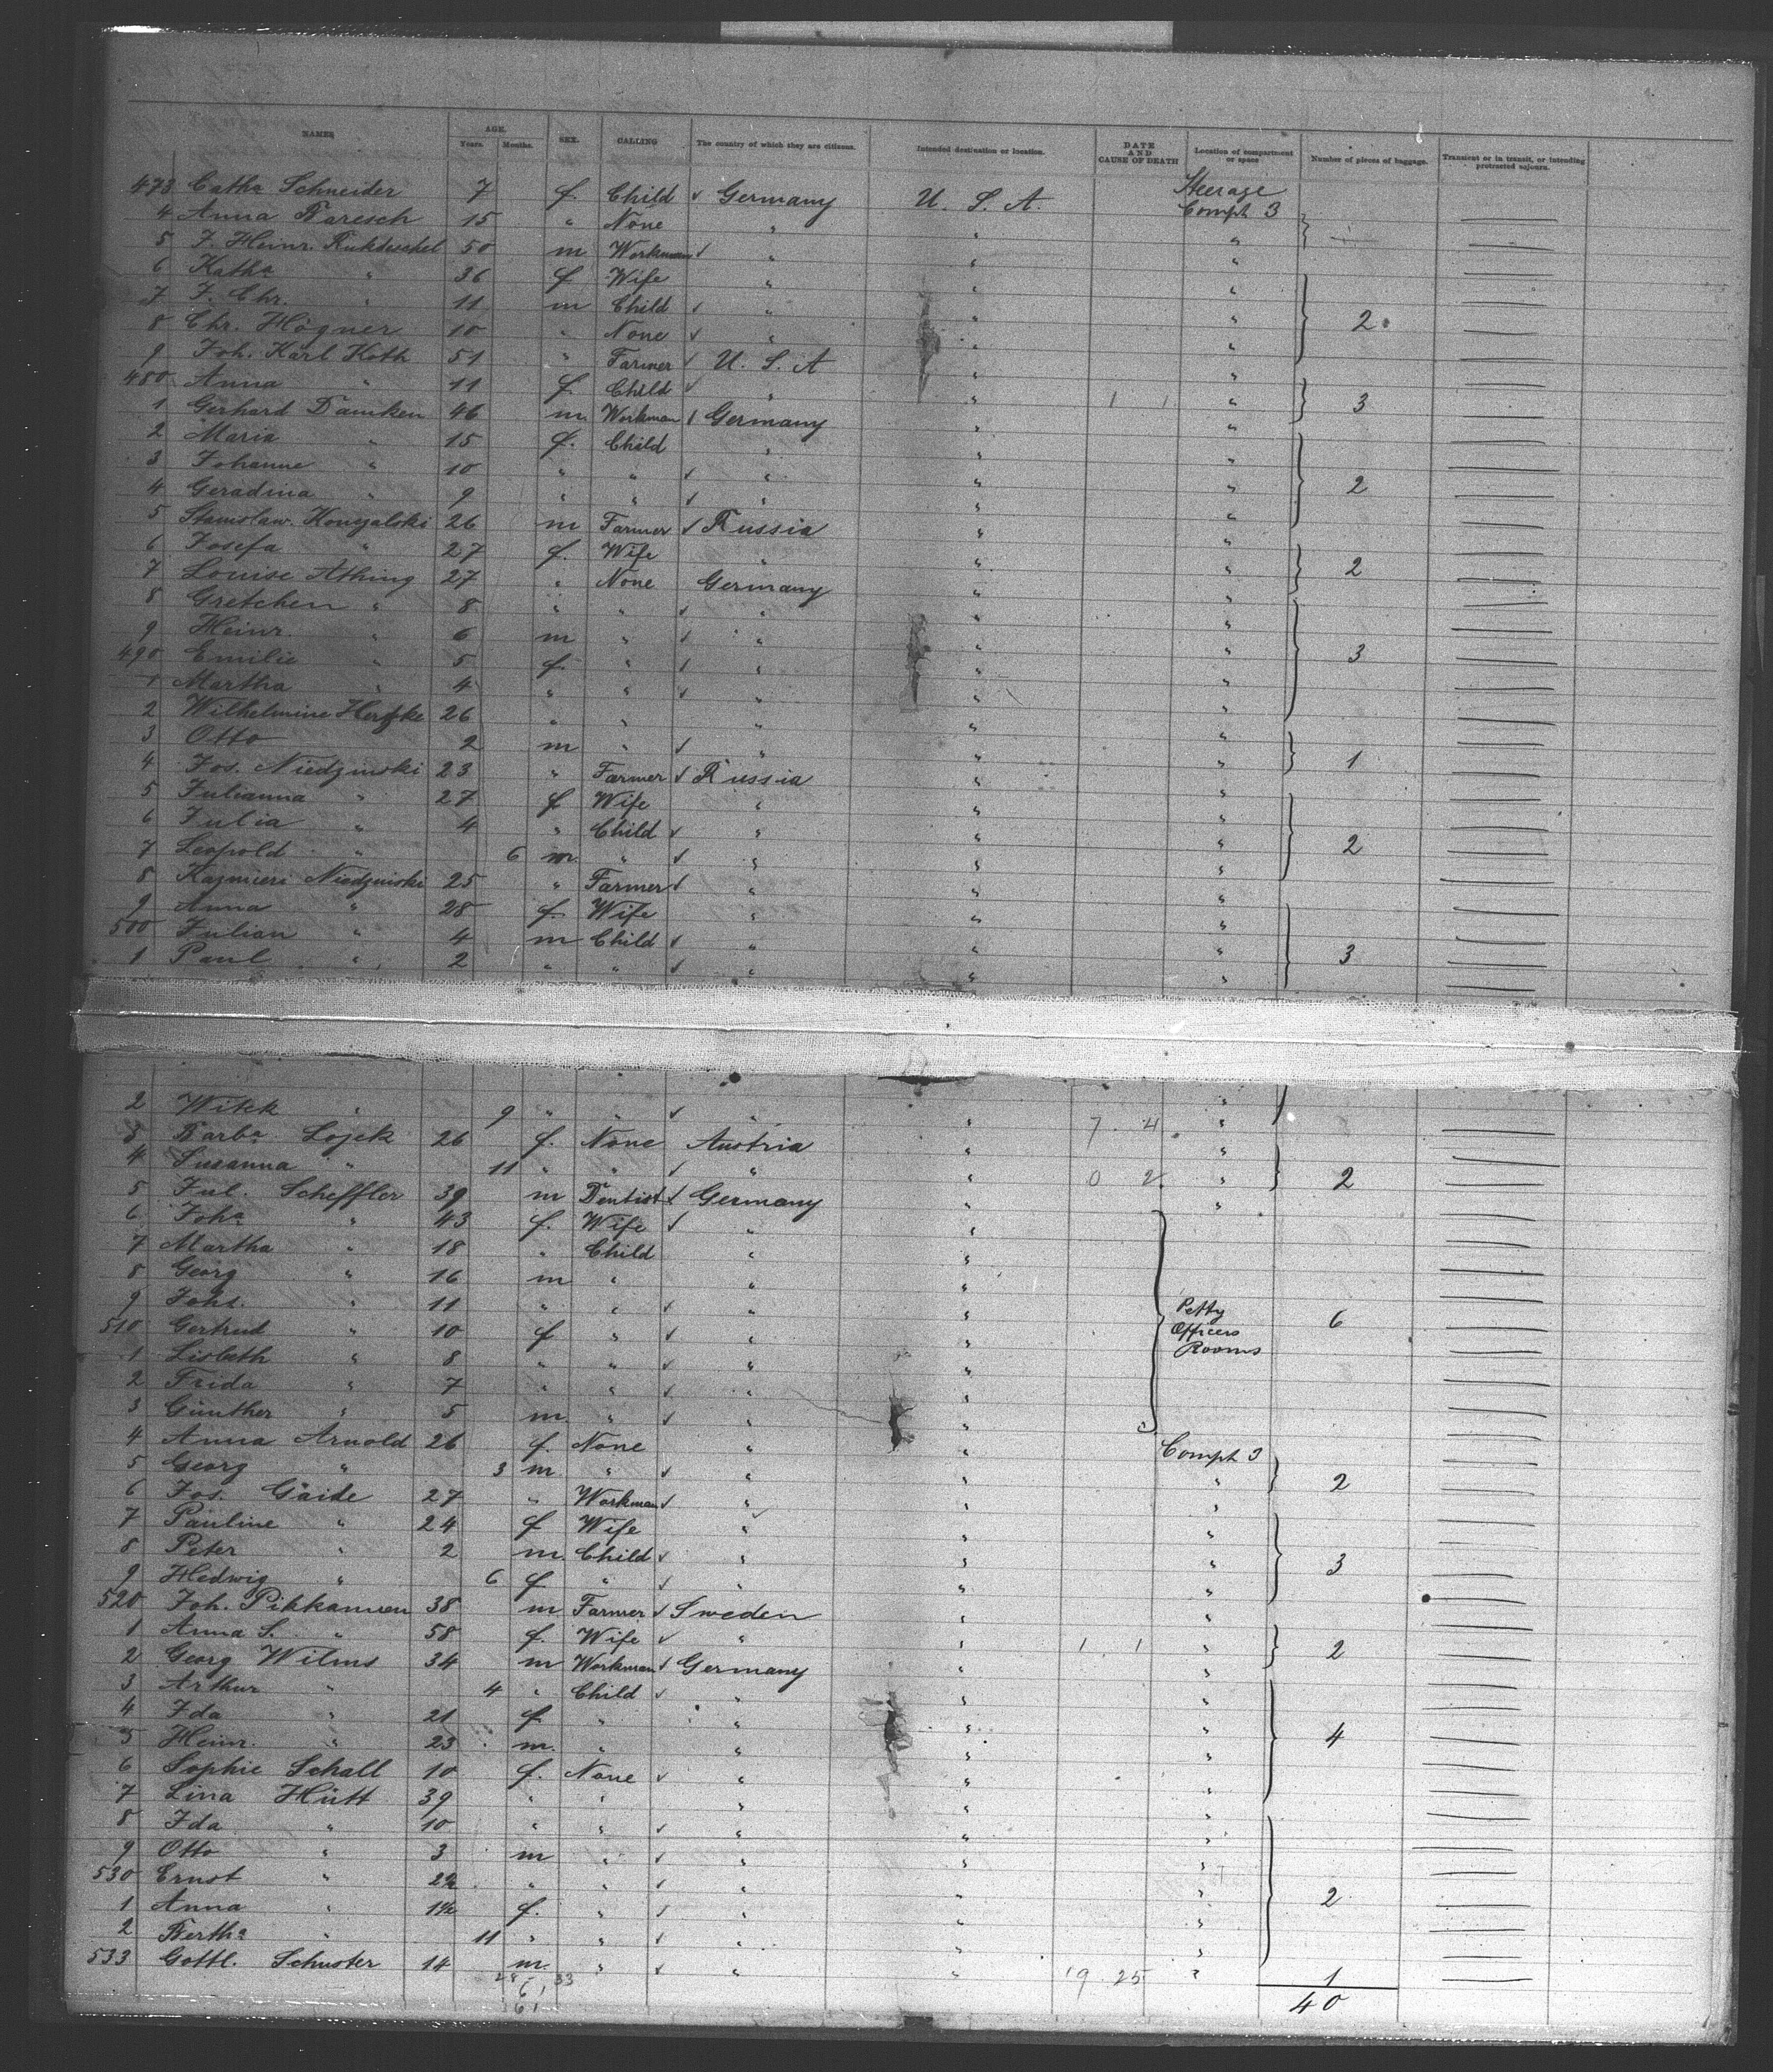 NAMES AGE. Years. Months. SEX. CALLING The country of which they are citizens. Intended destination or location. DATE AND CAUSE OF DEATH Location of compartment or space Number of pieces of baggage. Transient or in transit, or intending protracted sojourn.
473 Catha Schneider 7 f. Child ✓ Germany U. S. A. Steerage Compt 3
4 Anna Baresch 15 " None " " "
5 J. Heinr. 50 m Workman ✓ " " "
6 Katha " 36 f Wife " " "
7 J. Chr. " 11 m Child ✓ " " " 2
8 Chr. Högner 10 " None ✓ " " "
9 Joh. Karl Koth 51 " Farmer ✓ U. S. A " "
480 Anna " 11 f. Child ✓ " " " 3
1 Gerhard Damken 46 m Workman ✓ Germany " "
2 Maria " 15 f. Child " " "
3 Johanne " 10 " " ✓ " " " 2
4 Geradina " 9 " " ✓ " " "
5 Stanislaw. 26 m Farmer ✓ Russia " "
6 Josefa " 27 f. Wife " " " 2
7 Louise Athing 27 " None Germany " "
8 Gretchen " 8 " " ✓ " " "
9 Heinr. " 6 m " ✓ " " " 3
490 Emilie " 5 f " ✓ " " "
1 Martha " 4 " " ✓ " " "
2 Wilhelmine 26 " " " " "
3 Otto 2 m " ✓ " " " 1
4 Jos. Niedzinski 23 " Farmer ✓ Russia " "
5 Julianna " 27 f Wife " " "
6 Julia " 4 " Child ✓ " " " 2
7 Leopold " 6 m " ✓ " " "
8 Kazmieri Niedzinski 25 " Farmer ✓ " " "
9 Anna " 28 f. Wife " " "
500 Julian " 4 m Child ✓ " " " 3
1 Paul " 2 " " ✓ " " "
2 Wikk " 9 " " ✓ " " 7 4 "
3 Barba Lojek 26 f. None Austria " "
4 Susanna " 11 " " ✓ " " 0 2 " 2
5 Jul. Scheffler 39 m Dentist ✓ Germany " "
6 Joha " 43 f. Wife ✓ " "
7 Martha " 18 " Child " "
8 Georg " 16 m " " "
9 Johs. " 11 " " ✓ " " Petty Officers Rooms 6
510 Gertrud " 10 f " ✓ " "
1 Lisbeth " 8 " " ✓ " "
2 Frida " 7 " " ✓ " "
3 Günther " 5 m. " ✓ " "
4 Anna Arnold 26 f. None " " Compt 3
5 Georg " 3 m " ✓ " " " 2
6 Jos. Gaide 27 " Workman ✓ " " "
7 Pauline " 24 f Wife " " "
8 Peter " 2 m. Child ✓ " " " 3
9 Hedwig " 6 f " ✓ " " "
520 Joh. 38 m Farmer ✓ Sweden "
1 Anna S. " 58 f. Wife ✓ " " 1 1 " 2
2 Georg Wilms 34 m Workman ✓ Germany " "
3 Arthur " 4 " Child ✓ " " "
4 Ida " 21 f " " " "
5 Heinr. " 23 m. " " " " 4
6 Sophie Schall 10 f. None ✓ " " "
7 Lina Hütt 39 " " " " "
8 Ida " 10 " " ✓ " " "
9 Otto " 3 m " ✓ " " "
530 Ernst " 2½ " " ✓ " " "
1 Anna " 1½ f. " ✓ " " " 2
2 Bertha " 11 " " ✓ " " "
533 Gottl. Schuster 14 m. " ✓ " " 19 25 " 1
28 33
61
61
40